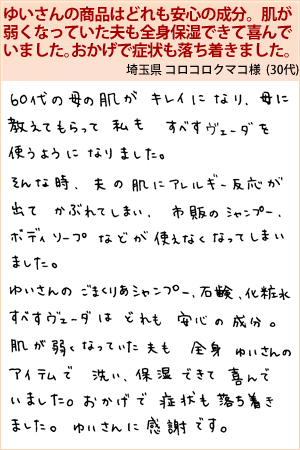 ゆいさんの商品はどれも安心の成分。肌が
弱くなっていた夫も全身保湿できて喜んで
いました。おかげで症状も落ち着きました。
埼玉県 コロコロクマコ様 (30代)
60代の母の肌が キレイになり、母に
教えてもらって 私も すべすヴェーダを
使うように なりました。
そんな時、夫の肌にアレルギー反応が
出て かぶれてしまい、市販のシャンプー、
ボディソープ などが 使えなくなってしまい
ました。
ゆいさんの ごまくりあシャンプー、石鹸、化粧水
すべすヴェーダは どれも 安心の成分。
肌が 弱くなっていた夫も 全身 ゆいさんの
アイテムで 洗い、保湿 できて 喜んで
いました。おかげで 症状も 落ち着き
ました。ゆいさんに 感謝です。